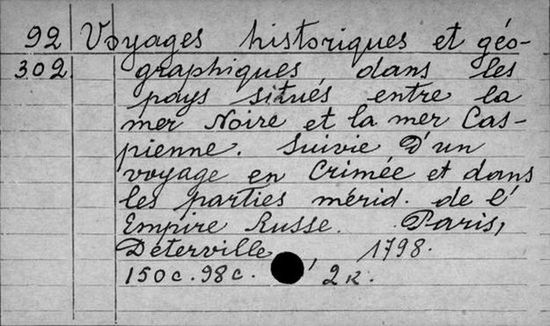 92 Voyages historiques et géo-
302. graphiques dans les
pays situés entre la
mer Noire et la mer Cas-
pienne. Suivie D'un
voyage en Crimée et dans
les parties mérid. de l'
Empire Russe. Paris,
Déterville, 1798.
150 c. 98 c. 2 к.